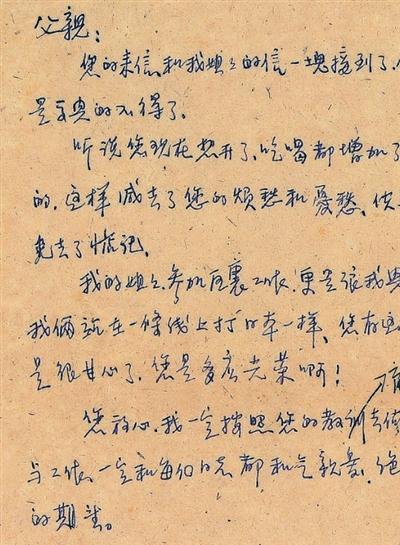 父親：
您的来信和我姐々的信一塊接到了，
是高興的不得了。
听说您现在想开了，吃喝都增加了
的，这样减去了您的烦愁和憂愁，
免去了惦记。
我的姐々参加后裹工作，更是很我興
我俩就在一條线上打日本一样，您存
是很甘心了，您是多底光荣啊！
您放心，我一定按照您的教训去
与工作，一定和每位同志都和气親爱，绝
的期望。